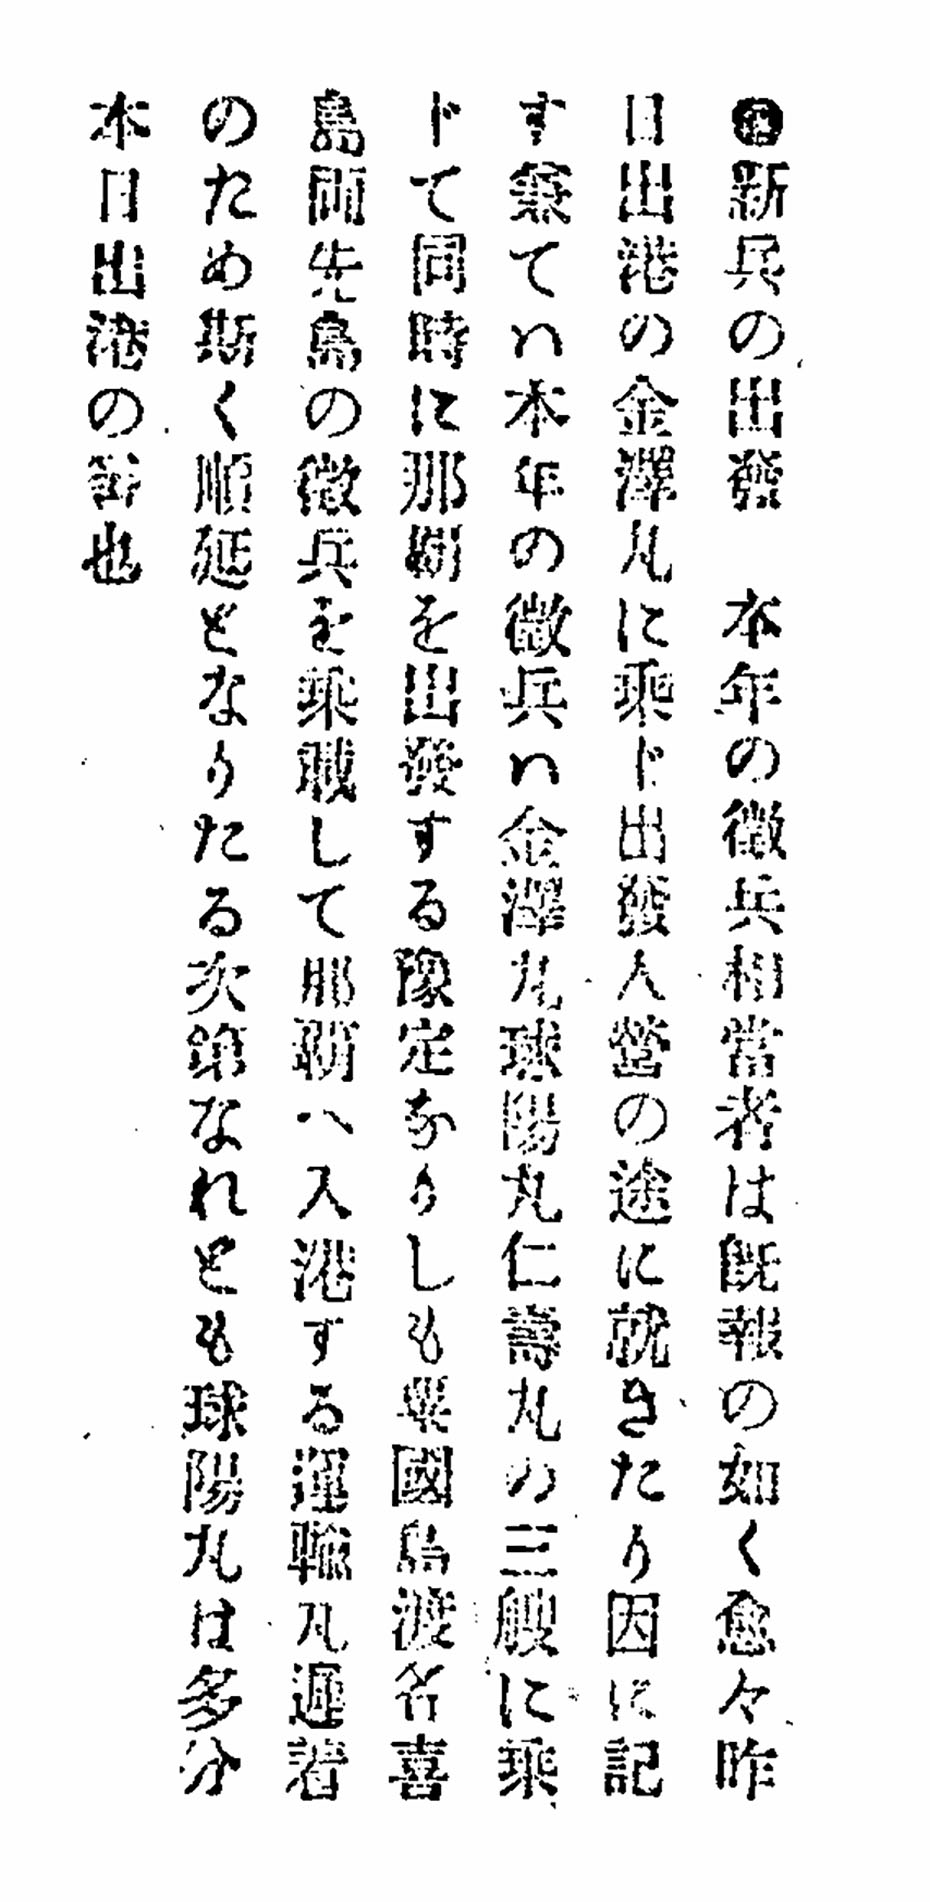 新兵の出發　本年の徵兵相當者は旣報の如く愈々昨
日出港の金澤丸に乘ド出發入營の途に就きたり因に記
す兼てハ本年の徵兵ハ金澤丸球陽丸仁壽丸の三艘に乘
ドて同時に那覇を出發する豫定なりしも粟國島渡名喜
島両先島の徵兵を乘載して那覇へ入港する運輸丸遲着
のため斯く順延となりたる次第なれとも球陽丸は多分
本日出港の筈也